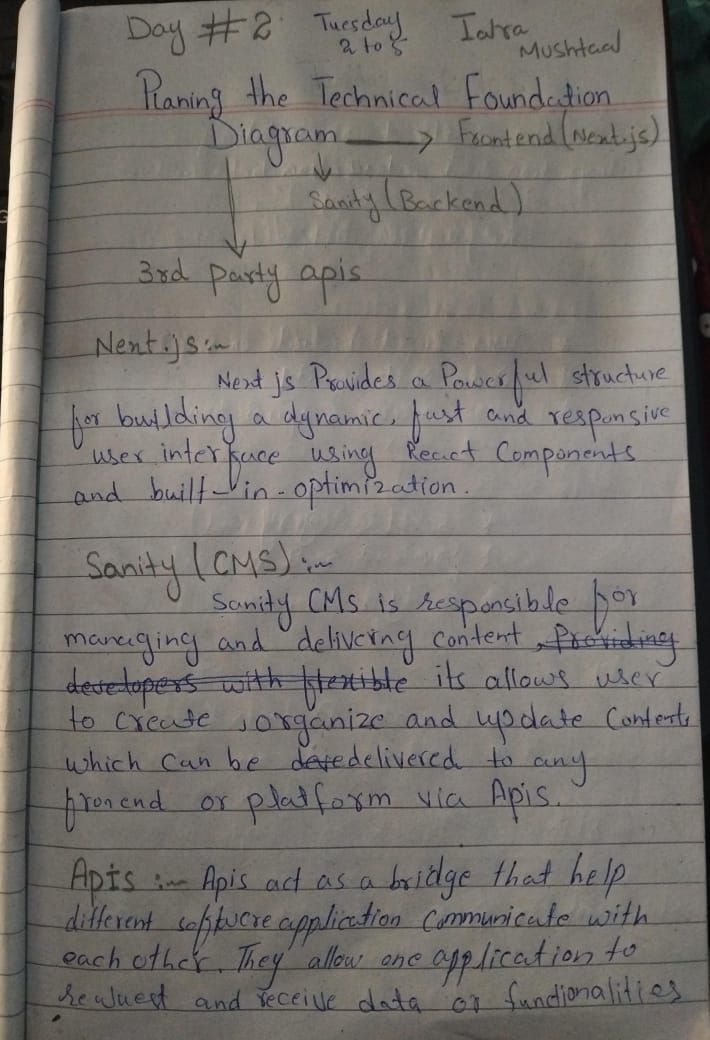 Day #2 Tuesday
2 to 5
Iqra
Mushtaq
Planing the Technical Foundation
Diagram → Frontend (Next.js)
Sanity (Backend)
3rd party apis
Next.js :-
Next js Provides a Powerful structure
for building a dynamic, fast and responsive
user interface using React Components
and built-in-optimization.
Sanity (CMS) :-
Sanity CMS is responsible for
managing and delivering content, Providing
developers with flexible its allows user
to create, organize and update Contents
which can be deve delivered to any
fronend or platform via Apis.
Apis :- Apis act as a bridge that help
different software application Communicate with
each other. They allow one application to
request and receive data or functionalities